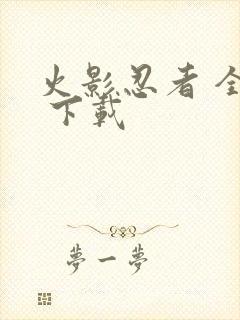 火影忍者 全
下載
夢一夢